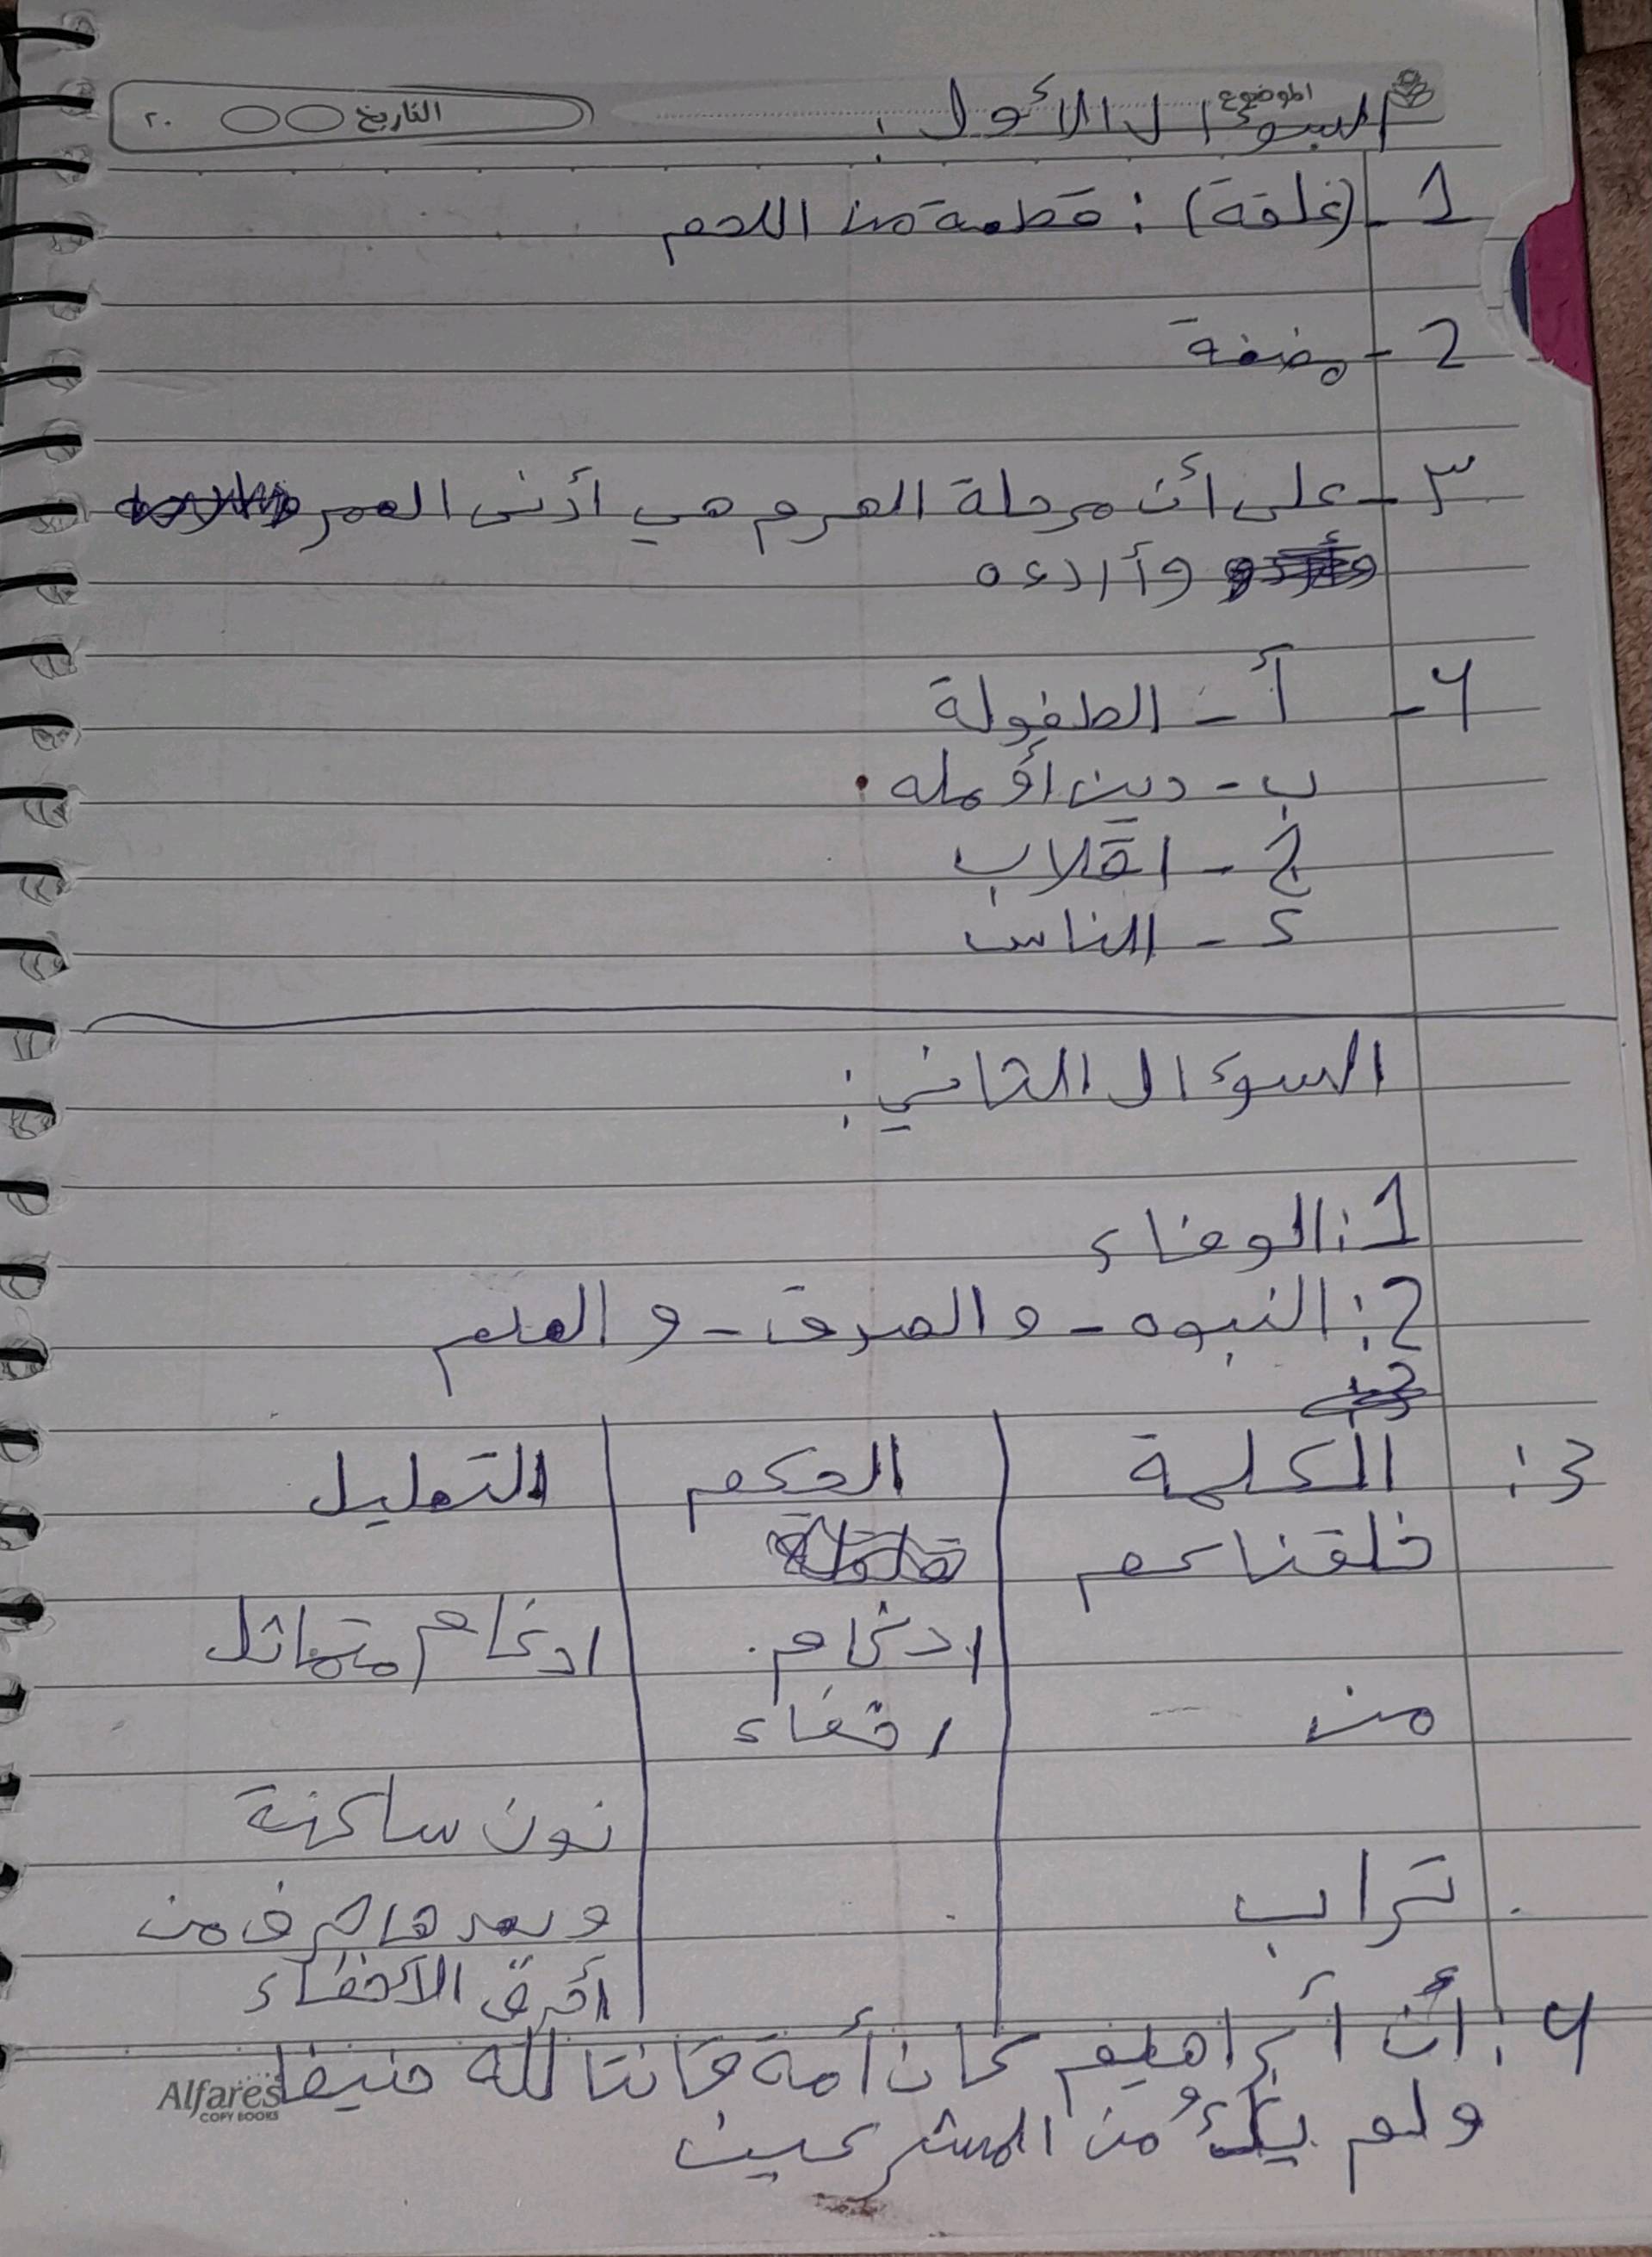 الموضوع
التاريخ ٢٠
السوءال الأول:
1 - (علقة) : قطعة من اللحم
2 - مضغة
٣ - على أن مرحلة الهرم هي أدنى العمر
وأردءه
٤ - أ - الطفولة
ب - دين أو مله
ج - اقلاب
د - الناس
السوءال الثاني:
1: الوفاء
2: النبوه - والصدق - والعلم
3: الكلمة الحكم التعليل
خلقناكم
ادغام. ادغام متماثل
من اخفاء
نون ساكنة
تراب
وبعدها حرف من
أحرف الأخفاء
٤: أن أبراهيم كان أمة قانتا لله حنيفا
Alfares
COPY BOOKS
ولم يكُ من المشركين